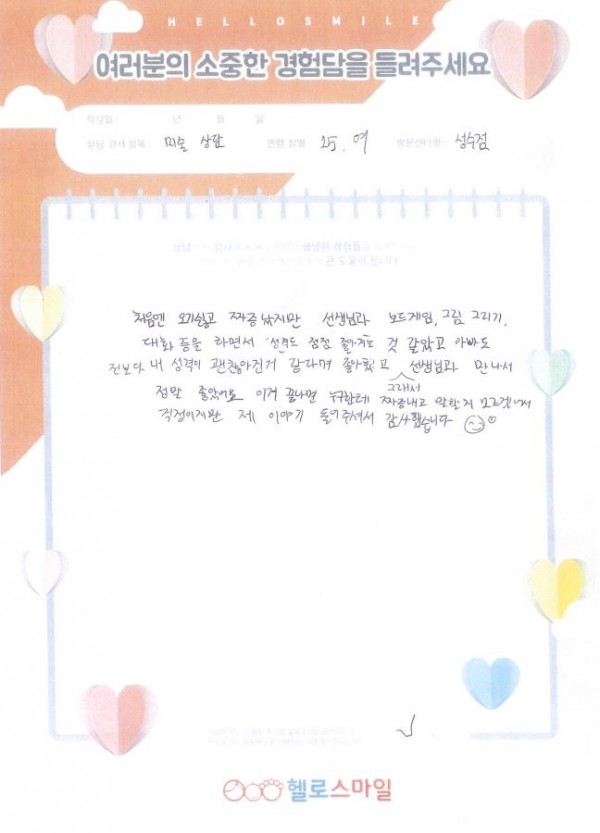 HELLOSMILE
여러분의 소중한 경험담을 들려주세요
작성일 : 년 월 일
상담·검사 항목 : 미술 상담 연령·성별 : 25. 여 방문센터명 : 성수점
처음엔 오기싫고 짜증났지만 선생님과 보드게임, 그림 그리기,
대화 등을 하면서 성격도 점점 좋아지는 것 같았고 아빠도
전보다 내 성격이 괜찮아진거 같다며 좋아했고 그래서 선생님과 만나서
정말 좋았어요 이거 끝나면 누구한테 짜증내고 말할지 모르겠어서
걱정이지만 제 이야기 들어주셔서 감사했습니다
헬로스마일